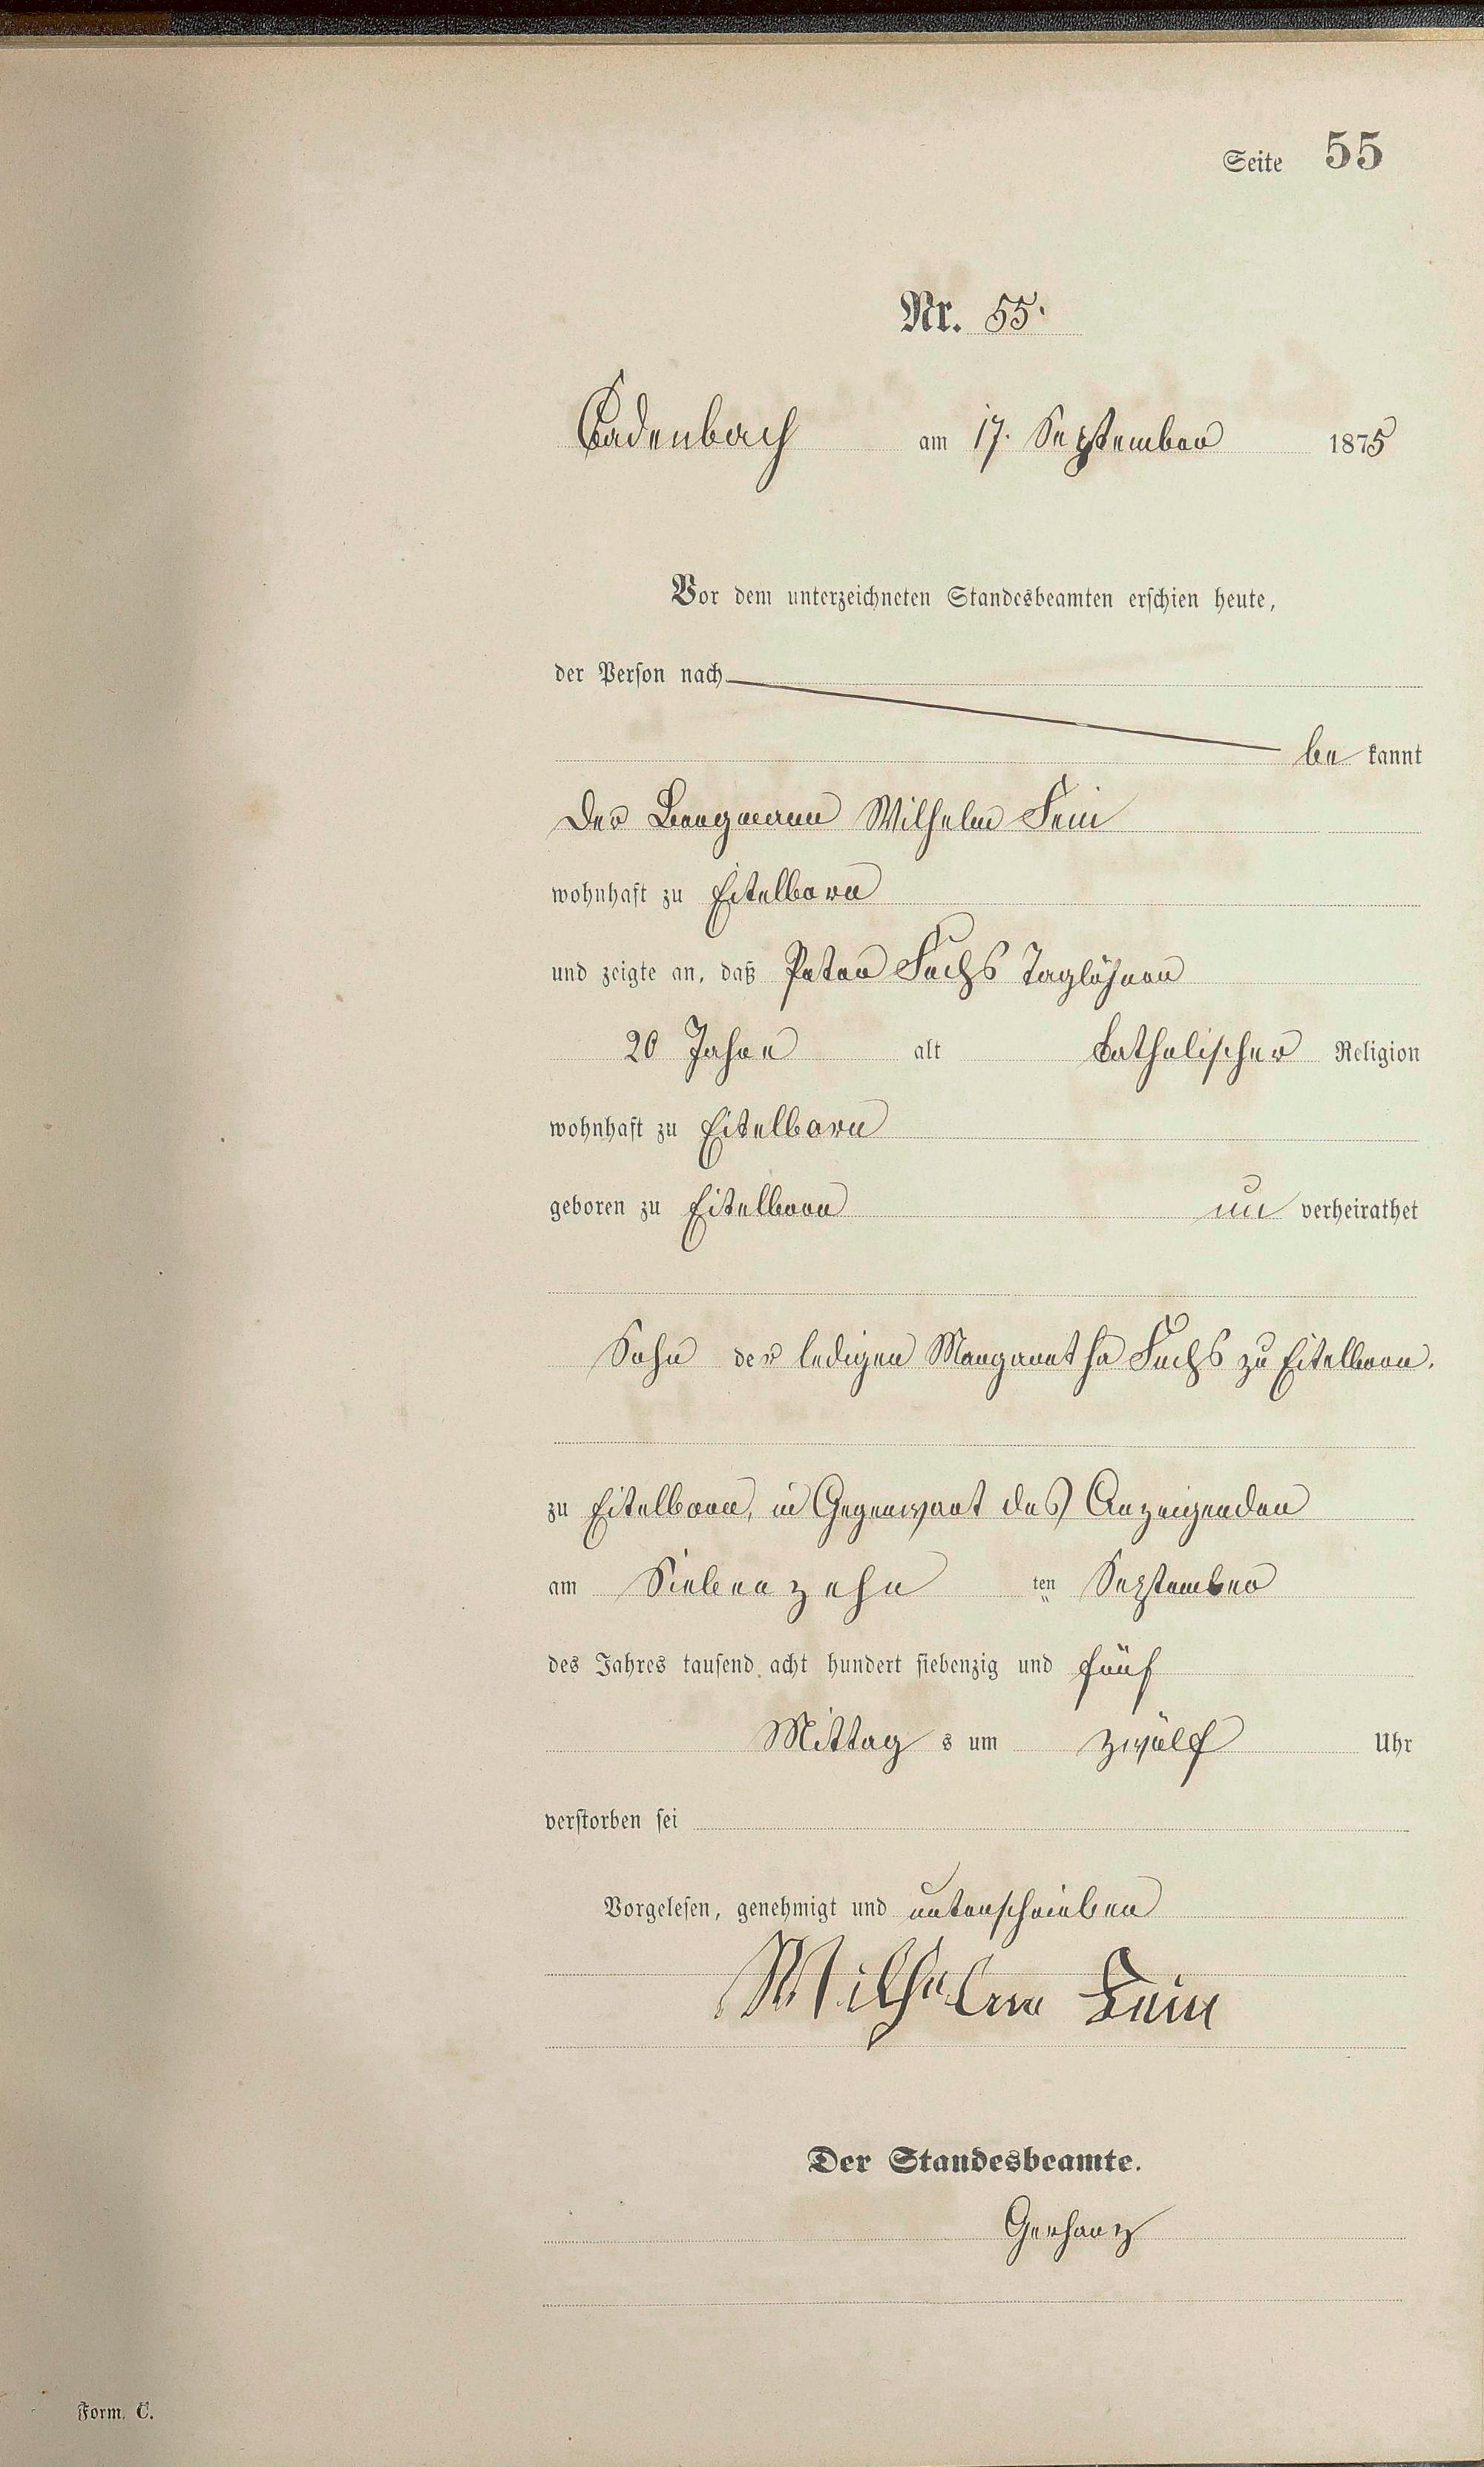 Seite 55
Nr. 55.
Cadenbach am 17. September 1875
Vor dem unterzeichneten Standesbeamten erschien heute,
der Person nach
be kannt
der Bergmann Wilhelm Fein
wohnhaft zu Eitelborn
und zeigte an, daß Peter Fuchs Taglöhner
20 Jahre alt katholischer Religion
wohnhaft zu Eitelborn
geboren zu Eitelborn un verheirathet
Sohn der ledigen Margaretha Fuchs zu Eitelborn.
zu Eitelborn, in Gegenwart des Anzeigenden
am Siebenzehn ten September
des Jahres tausend acht hundert siebenzig und fünf
Mittag s um zwölf Uhr
verstorben sei
Vorgelesen, genehmigt und unterschrieben
Wilhelm Fein
Der Standesbeamte.
Gerharz
Form. C.